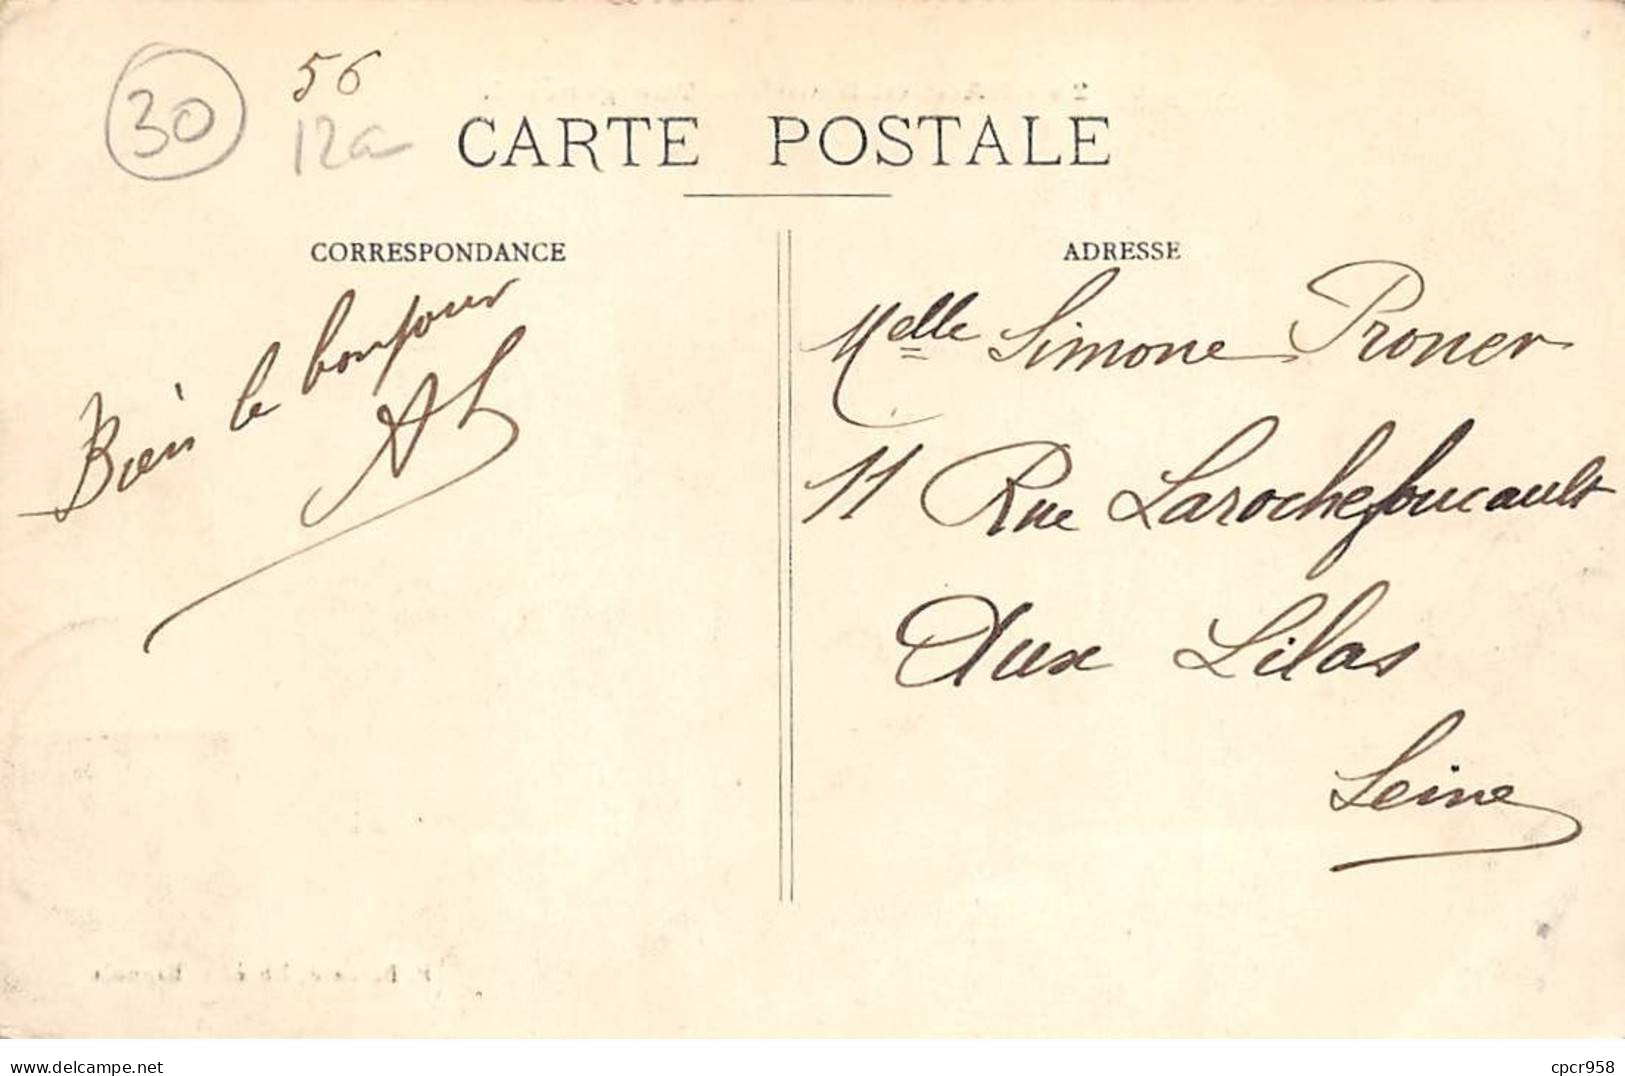 30
56
12a
CARTE POSTALE
CORRESPONDANCE
Bien le bonjour
AL
ADRESSE
Melle Simone Proner
11 Rue Larochefoucault
Aux Lilas
Seine
delcampe.net
cpcr958